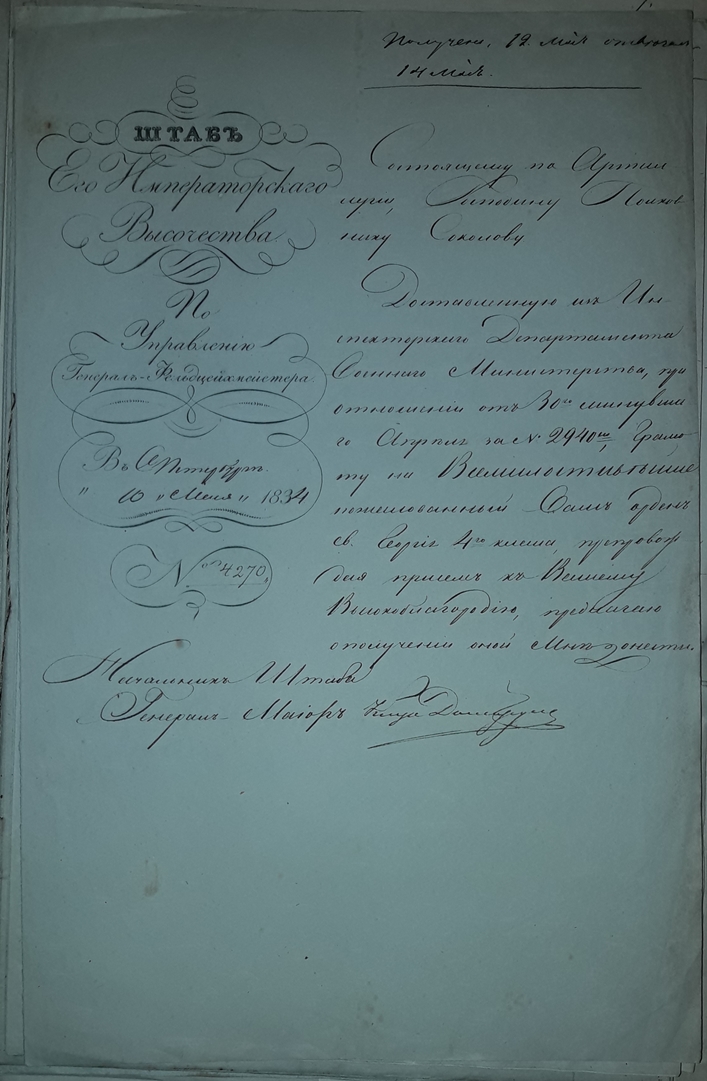 Получено, 12. Маiя
14 Маiя.
ШТАБЪ
Его Императорскаго
Высочества
По
Управленiю
Генералъ-Фельдцейхмейстера.
Въ С.Петербургѣ.
„ 10 „ Маiя „ 1834
№ 4270.
Состоящему по Артил
лерiи, Господину Полков
нику Соколову
Доставленную изъ Ин-
спекторскаго Департамента
Военнаго Министерства, при
отношенiи отъ 30го минувша
го Апрѣля за № 2940мъ, Грамо
ту на Всемилостивѣйше
пожалованный Вамъ орденъ
св. Георгiя 4го класса, препровож
дая присемъ къ Вашему
Высокоблагородiю, предлагаю
ополученiи оной Мнѣ донести.
Начальникъ Штаба
Генералъ-Маiоръ Князь